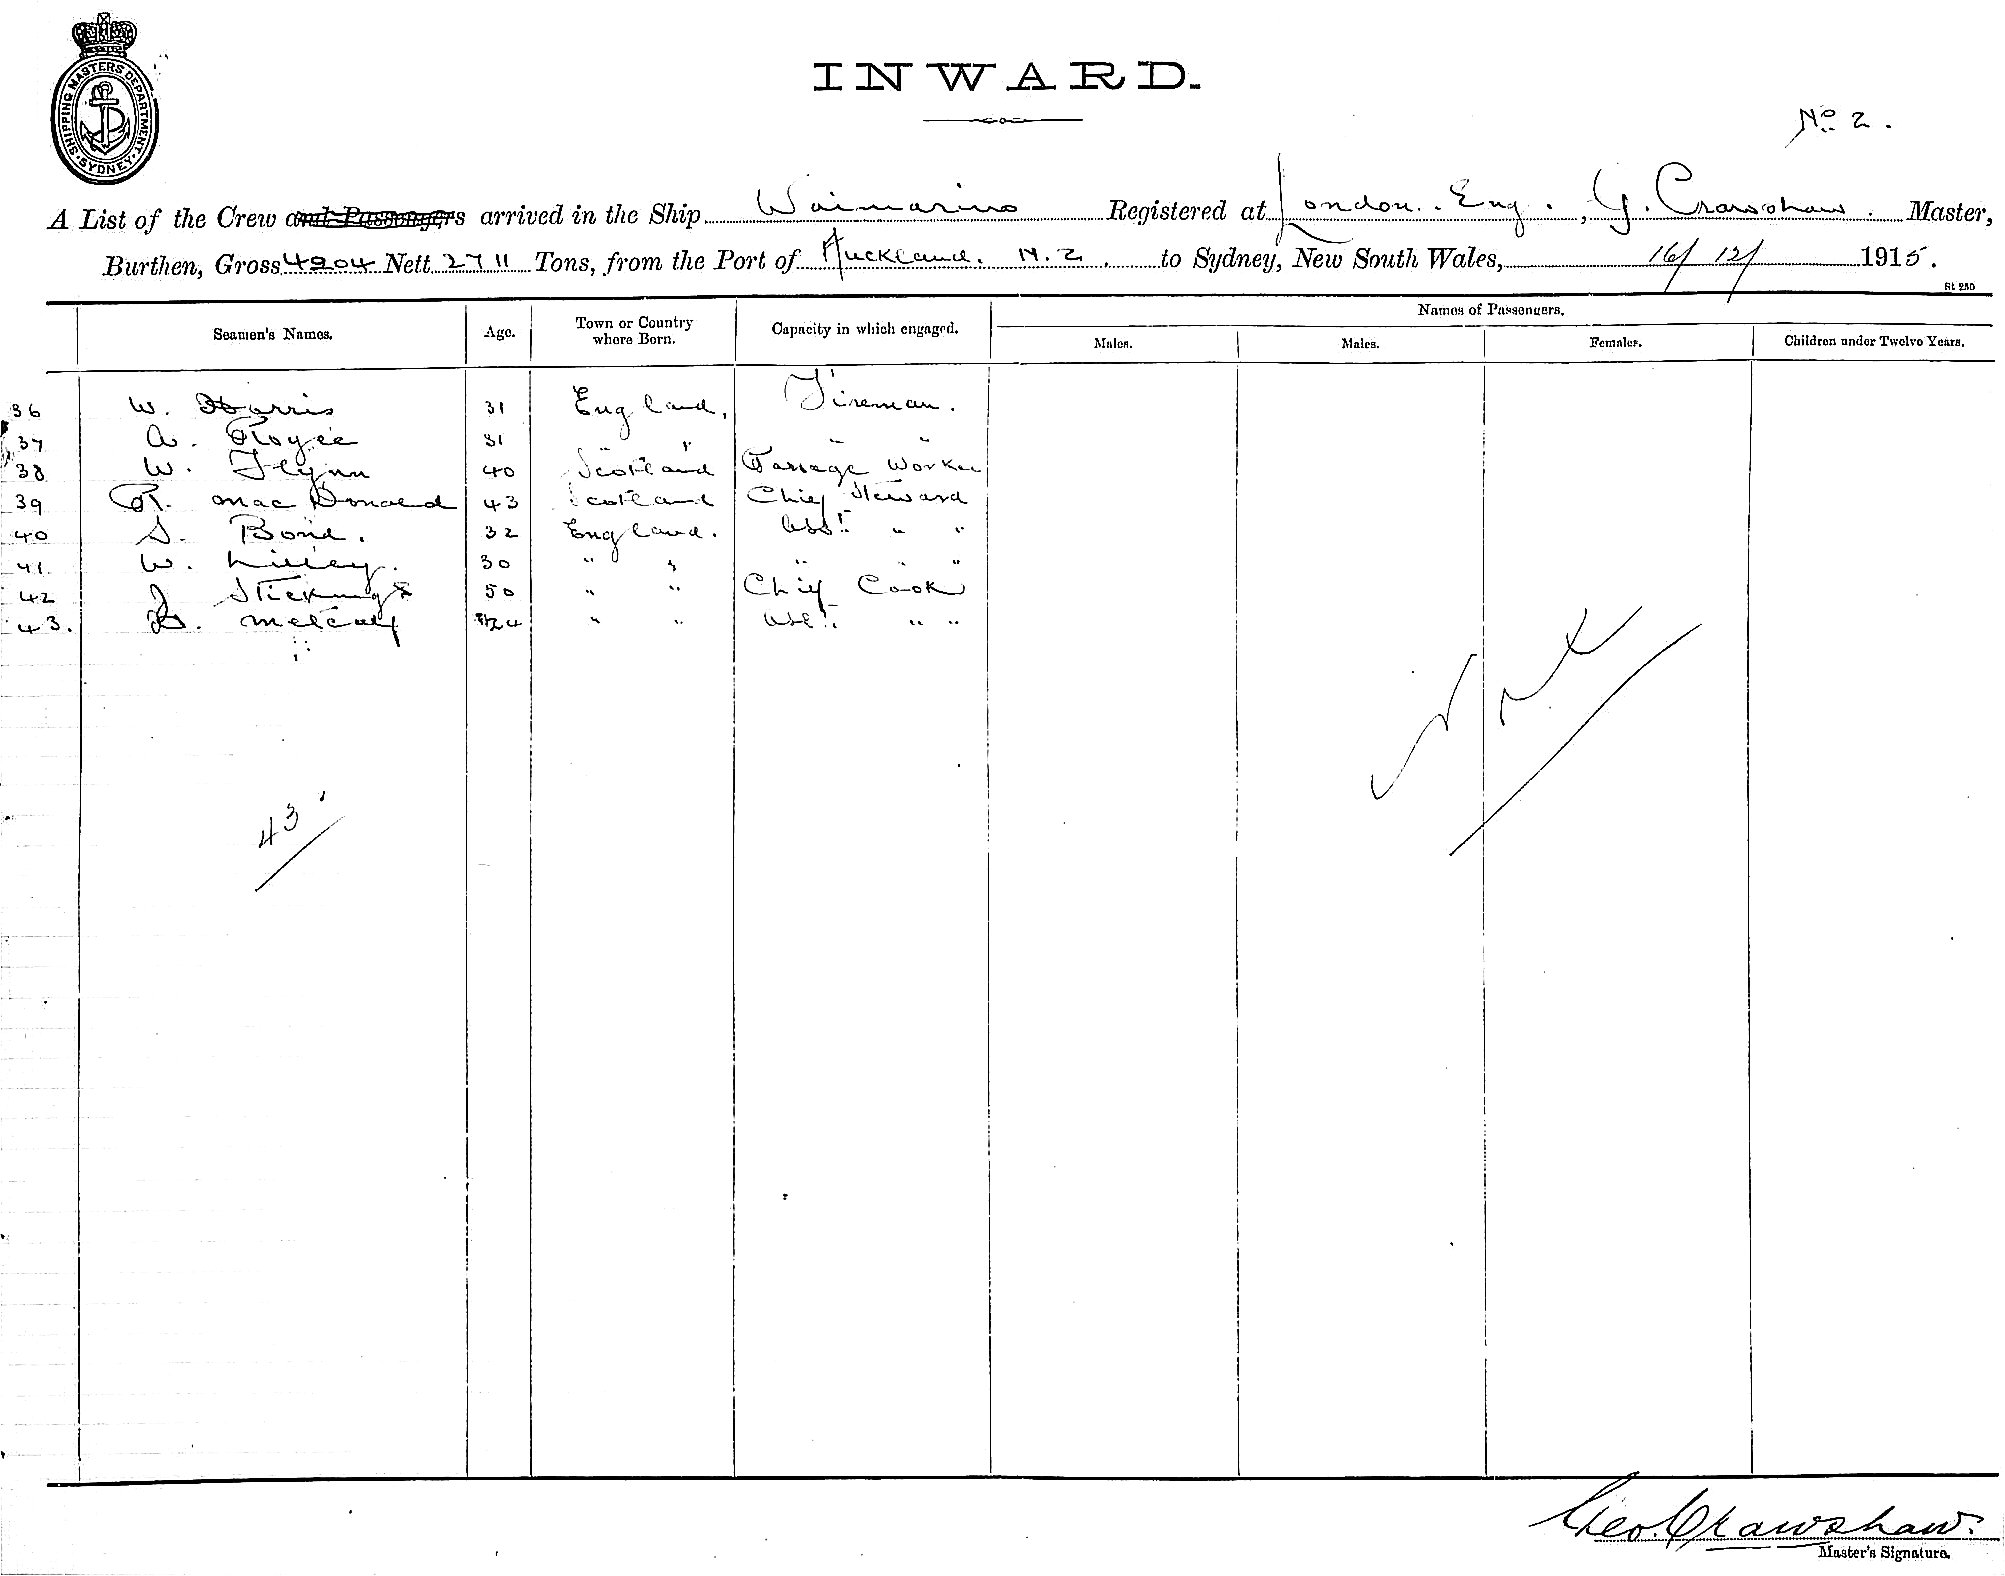 SHIPPING MASTERS DEPARTMENT · SYDNEY ·
INWARD.
No 2.
A List of the Crew and Passengers arrived in the Ship Waimarino Registered at London. Eng., G. Crawshaw. Master,
Burthen, Gross 4204 Nett 2711 Tons, from the Port of Auckland. N.Z. to Sydney, New South Wales, 16/12/ 1915.
St 250
Names of Passengers.
Seamen's Names. Age. Town or Country where Born. Capacity in which engaged. Males. Males. Females. Children under Twelve Years.
36 W. Harris 31 England, Fireman.
37 A. Royce 31 " " "
38 W. Flynn 40 Scotland Passage Worker
39 R. Mac Donald 43 Scotland Chief Steward
40 S. Bond. 32 England. Asst. " "
41. W. Lilley. 30 " " " " "
42 J. Stickings 50 " " Chief Cook
43. Metcalf 24 " " Asst. " "
43
Geo. Crawshaw.
Master's Signature.